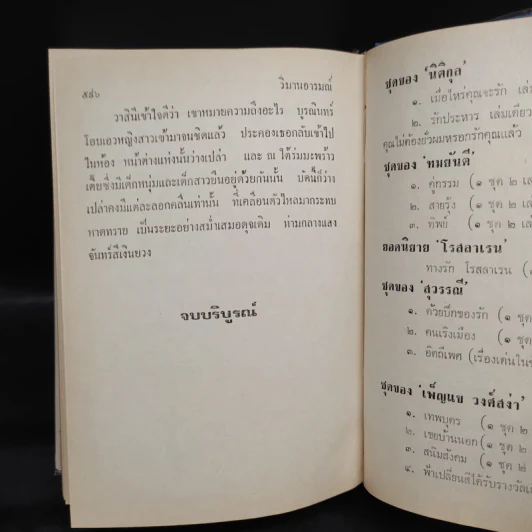 ๕๘๖
วิมานอารมณ์
วาสินีเข้าใจดีว่า เขาหมายความถึงอะไร บูรณินทร์
โอบเอวหญิงสาวเข้ามาจนชิดแล้ว ประคองเธอกลับเข้าไป
ในห้อง หน้าต่างแห่งนั้นว่างเปล่า และ ณ ใต้ร่มมะพร้าว
เตี้ยซึ่งมีเด็กหนุ่มและเด็กสาวยืนอยู่ด้วยกันนั้น บัดนี้ก็ว่าง
เปล่าคงมีแต่ละลอกคลื่นเท่านั้น ที่เคลื่อนตัวไหลมากระทบ
หาดทราย เป็นระยะอย่างสม่ำเสมอดุจเดิม ท่ามกลางแสง
จันทร์สีเงินยวง
จบบริบูรณ์
ชุดของ 'นิติกุล'
๑. เมื่อไหร่คุณจะรัก
๒. รักประหาร เล่มเดียว
คุณไม่ต้องยั่วผมหรอกรักคุณแล้ว
ชุดของ 'ทมยันตี'
๑. คู่กรรม (๑ ชุด ๒
๒. สายรุ้ง (๑ ชุด ๒
๓. ทิพย์ (๑ ชุด ๒
ยอดนิยาย 'โรสลาเรน'
ทางรัก โรสลาเรน (๑
ชุดของ 'สุวรรณี'
๑. ด้วยปีกของรัก (๑
๒. คนเริงเมือง (๑
๓. อิตถีเพศ (เรื่องเด่นใน
ชุดของ 'เพ็ญแข วงศ์สง่า'
๑. เทพบุตร (๑ ชุด ๒
๒. เขยบ้านนอก (๑ ชุด ๒
๓. สนิมสังคม (๑ ชุด ๒
๔. ฟ้าเปลี่ยนสีได้รับรางวัล